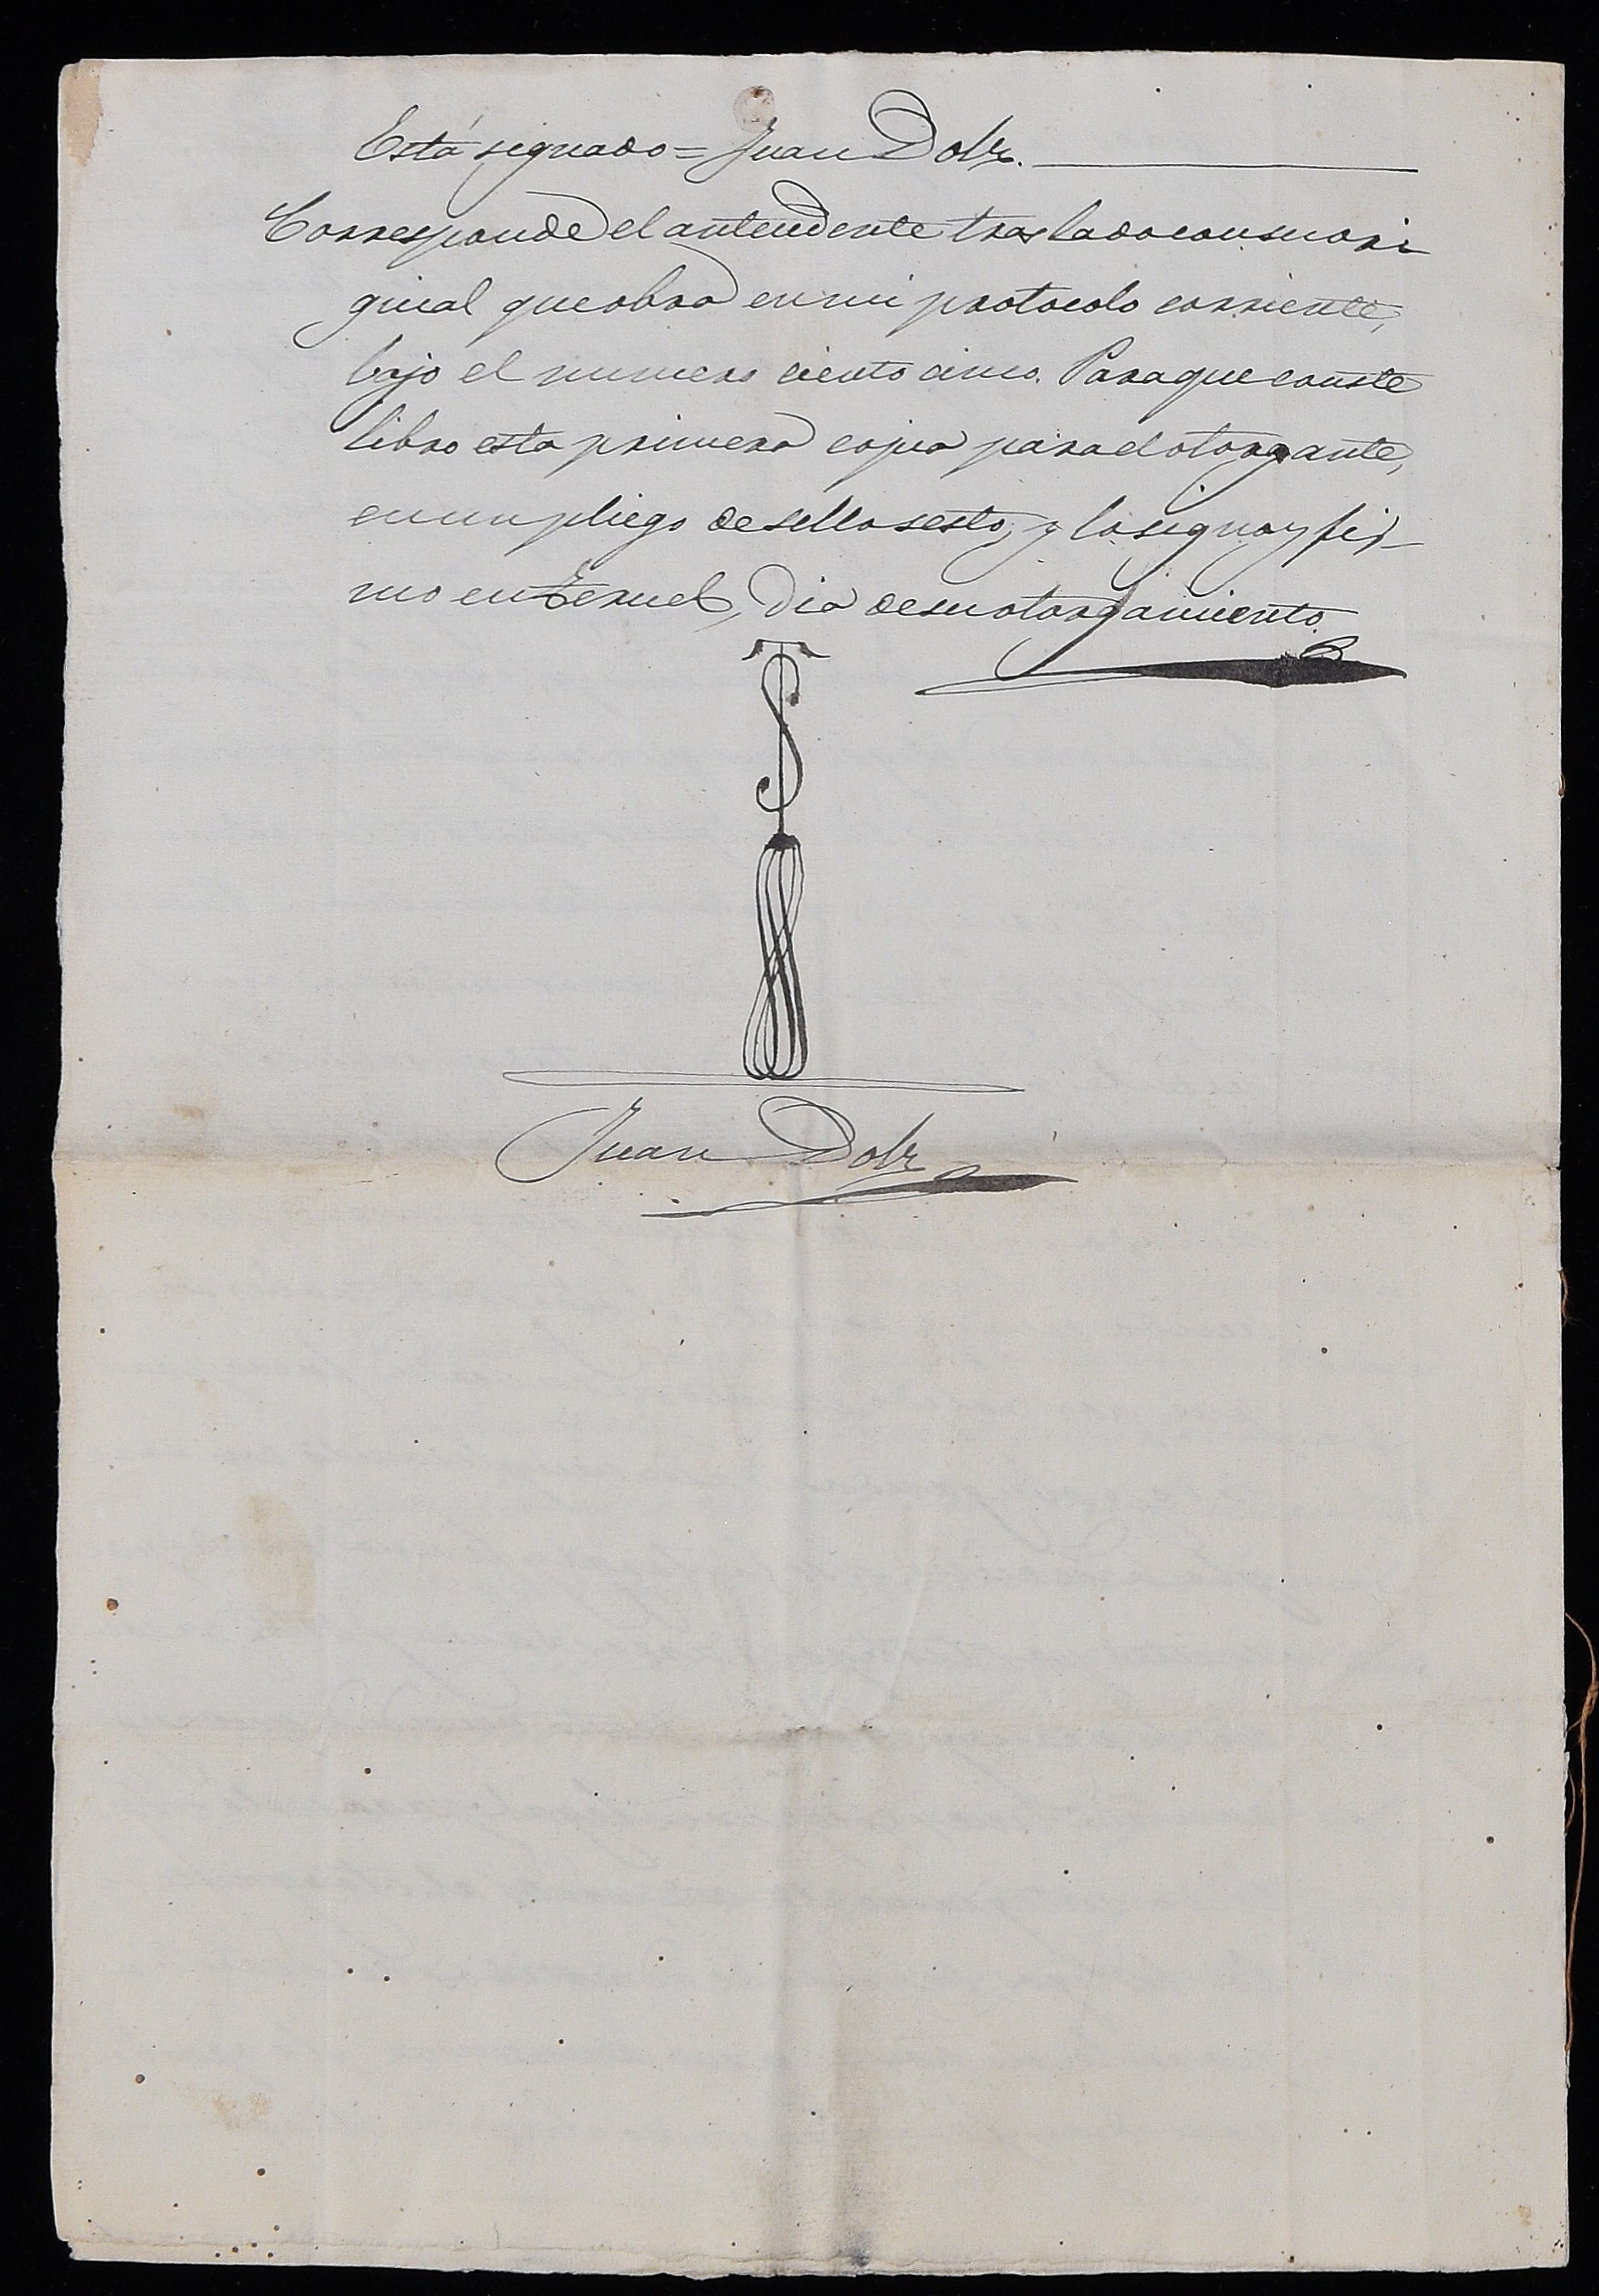 Está signado = Juan Dolz.
Corresponde el antendente traslado con su ori
ginal que obra en mi protocolo corriente,
bajo el numero ciento cinco. Para que conste
libro esta primera copia para el otorgante,
en un pliego de sello sesto, y lo signo y fir-
mo en Teruel, dia de su otorgamiento.
Juan Dolz